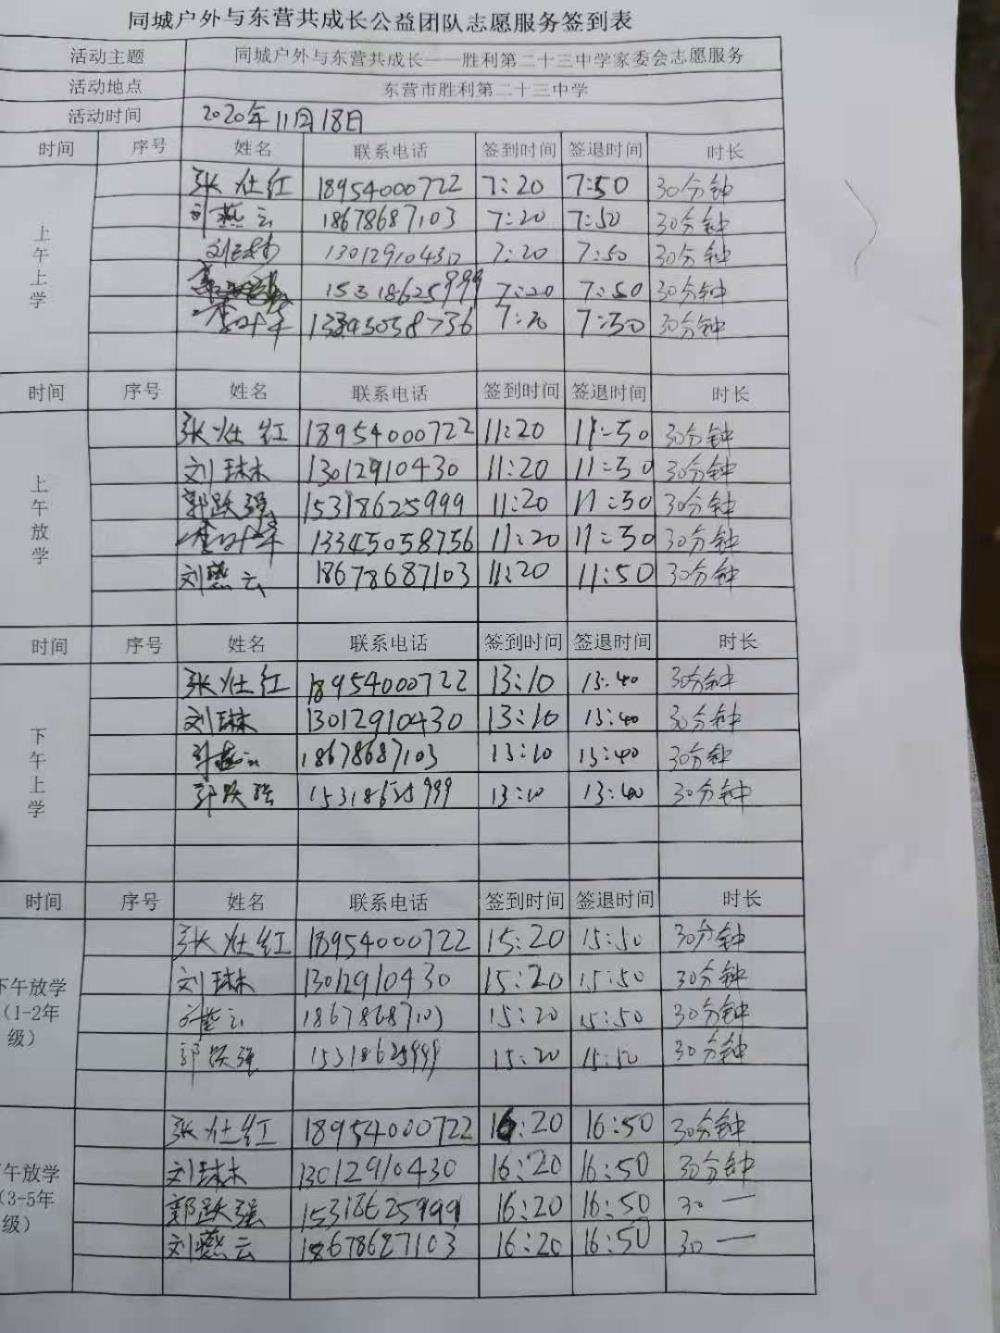 同城户外与东营共成长公益团队志愿服务签到表
活动主题 同城户外与东营共成长——胜利第二十三中学家委会志愿服务
活动地点 东营市胜利第二十三中学
活动时间 2020年11月18日
时间 序号 姓名 联系电话 签到时间 签退时间 时长
上午上学
张灶红 18954000722 7:20 7:50 30分钟
刘燕云 18678687103 7:20 7:50 30分钟
刘琳 13012910430 7:20 7:50 30分钟
15318625999 7:20 7:50 30分钟
7:20 7:50 30分钟
时间 序号 姓名 联系电话 签到时间 签退时间 时长
上午放学
张灶红 18954000722 11:20 11:50 30分钟
刘琳 13012910430 11:20 11:50 30分钟
郭跃强 15318625999 11:20 11:50 30分钟
13345058756 11:20 11:50 30分钟
刘燕云 18678687103 11:20 11:50 30分钟
时间 序号 姓名 联系电话 签到时间 签退时间 时长
下午上学
张灶红 18954000722 13:10 13:40 30分钟
刘琳 13012910430 13:10 13:40 30分钟
刘燕云 18678687103 13:10 13:40 30分钟
郭跃强 15318625999 13:10 13:40 30分钟
时间 序号 姓名 联系电话 签到时间 签退时间 时长
下午放学
(1-2年
级)
张灶红 18954000722 15:20 15:50 30分钟
刘琳 13012910430 15:20 15:50 30分钟
刘燕云 18678687103 15:20 15:50 30分钟
郭跃强 15318625999 15:20 15:50 30分钟
午放学
(3-5年
级)
张灶红 18954000722 16:20 16:50 30分钟
刘琳 13012910430 16:20 16:50 30分钟
郭跃强 15318625999 16:20 16:50 30 —
刘燕云 18678687103 16:20 16:50 30 —